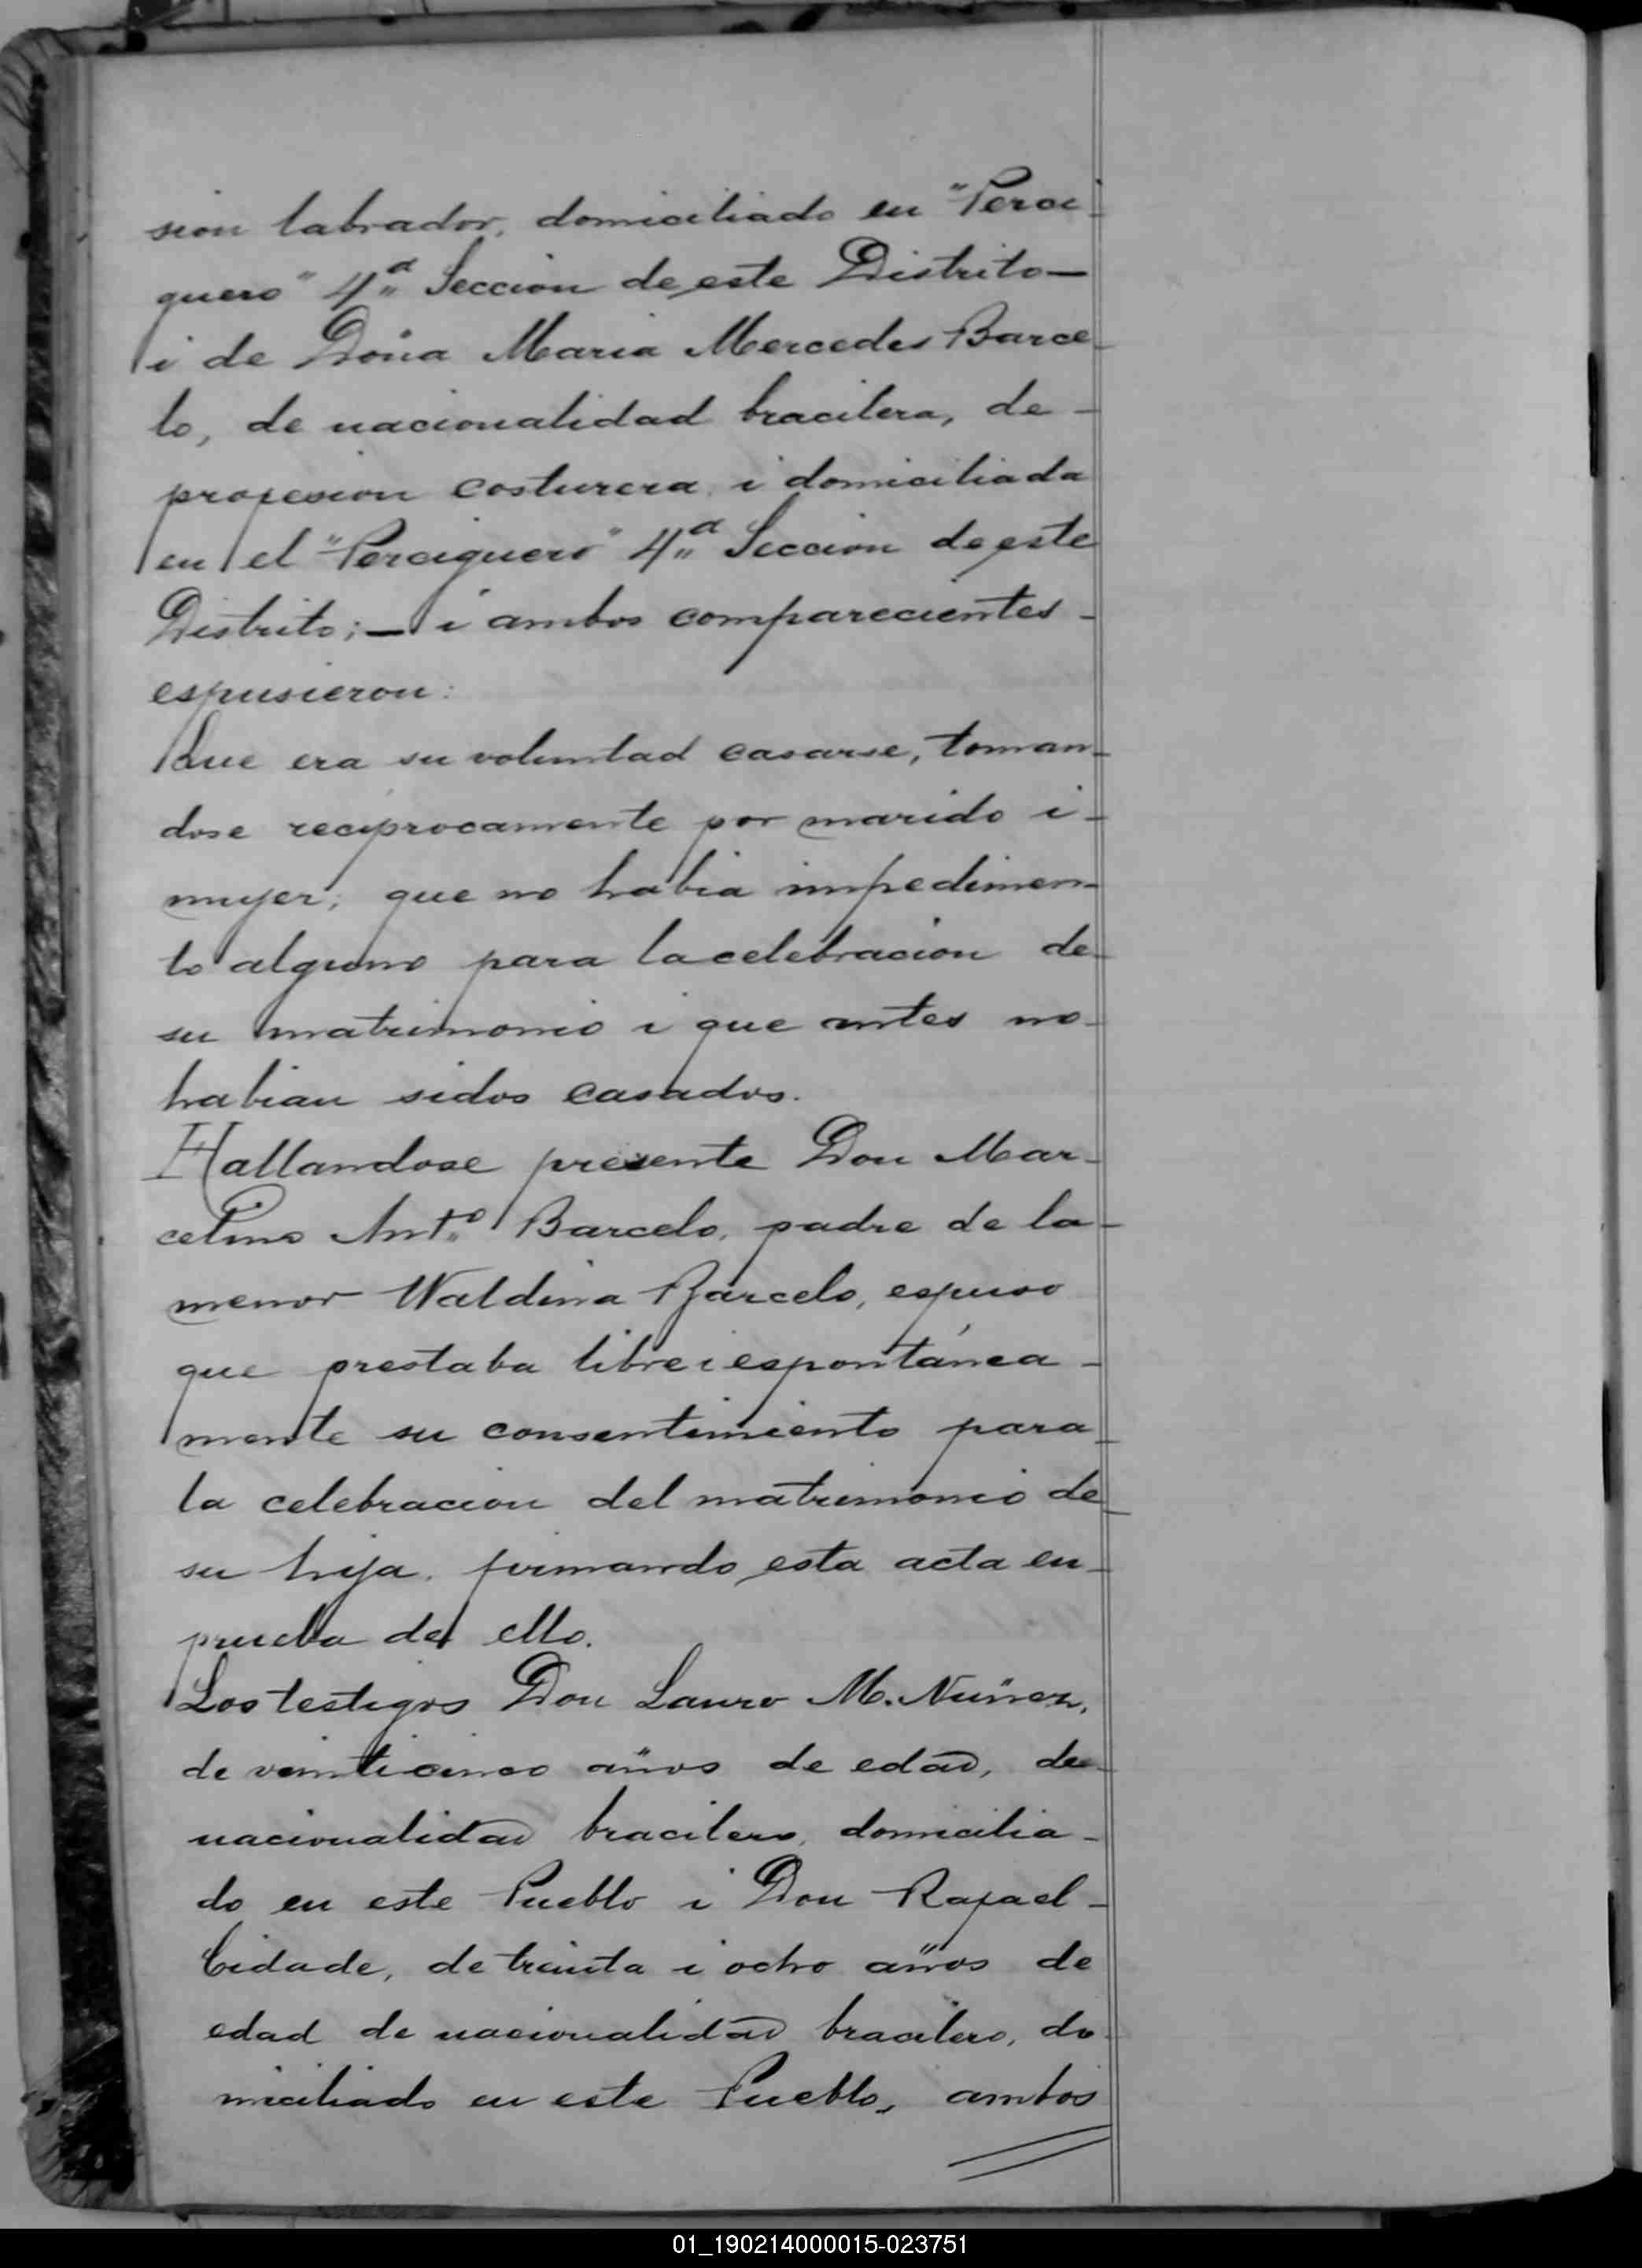 sion labrador, domiciliado en "Perci-
guero" 4ª Seccion de este Distrito—
i de Doña Maria Mercedes Barce-
lo, de nacionalidad bracilera, de -
profesion costurera i domiciliada
en el "Perciguero" 4ª Seccion de este
Distrito; — i ambos comparecientes -
espusieron:
Que era su voluntad casarse, toman-
dose reciprocamente por marido i -
mujer; que no habia impedimen-
to alguno para la celebracion de-
su matrimonio i que antes no-
habian sidos casados.
Hallandose presente Don Mar-
celino Antº Barcelo, padre de la-
menor Waldina Barcelo, espuso
que prestaba libre i espontánea -
mente su consentimiento para-
la celebracion del matrimonio de-
su hija, firmando esta acta en-
prueba de ello.
Los testigos Don Lauro M. Nuñez,
de veinticinco años de edad, de-
nacionalidad bracilero, domicilia -
do en este Pueblo i Don Rafael -
Cidade, de treinta i ocho años de
edad de nacionalidad bracilero, do-
miciliado en este Pueblo, ambos
01_190214000015-023751